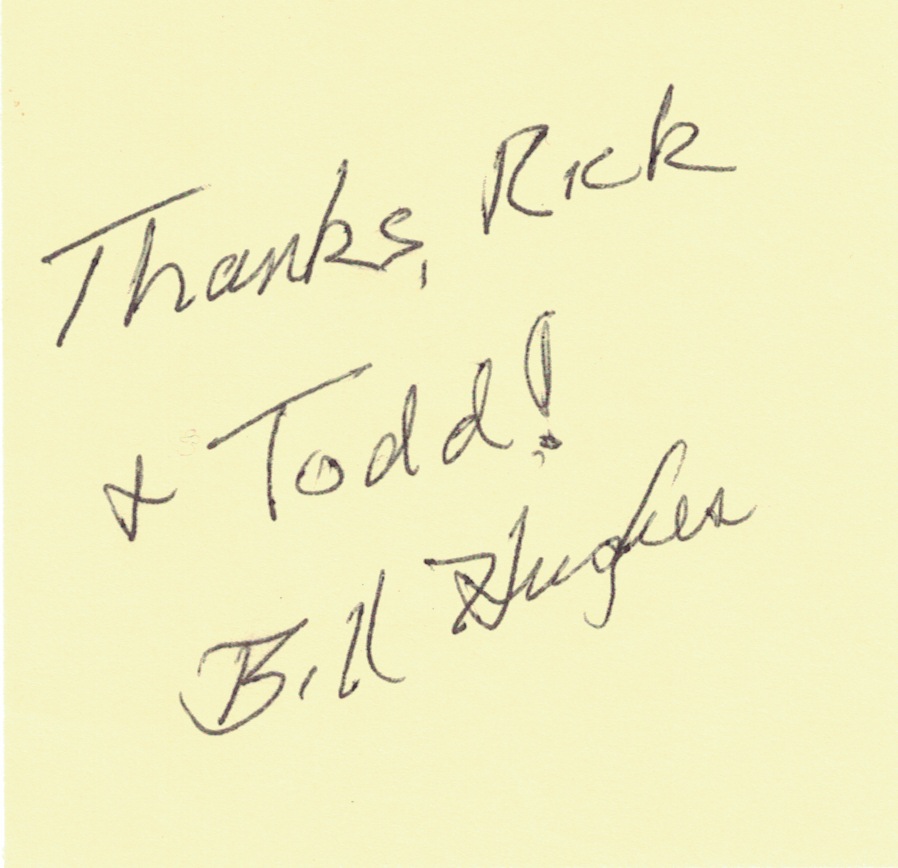 Thanks, Rick
& Todd!
Bill Hughes